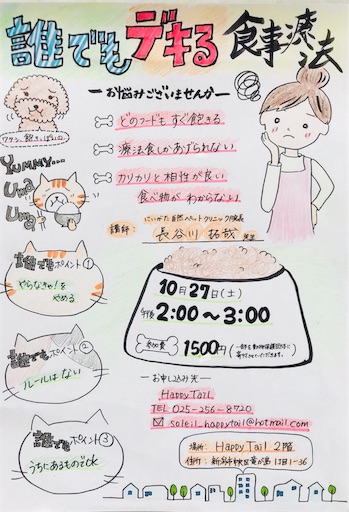 誰でもデキる 食事療法
ーお悩みございませんかー
どのフードもすぐ飽きる
療法食しかあげられない
カリカリと相性が良い
食べ物がわからない
YUMMY...
Uma
Uma
講師:にいがた自然ペットクリニック院長
長谷川 拓哉 先生
誰でもポイント①
やらなきゃ!を
やめる
誰でもポイント②
ルールはない
誰でもポイント③
うちにあるものでOK
10月27日(土)
午後 2:00〜3:00
参加費 1500円
ーお申し込み先ー
Happy Tail
TEL 025-256-8720
soleil_happytail@hotmail.com
場所: Happy Tail 2階
住所:新潟市秋区
1-36